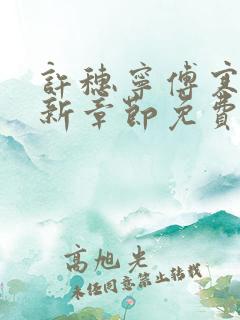 許穗寧傅寒
新章節免費
高旭光
未經同意禁止转载